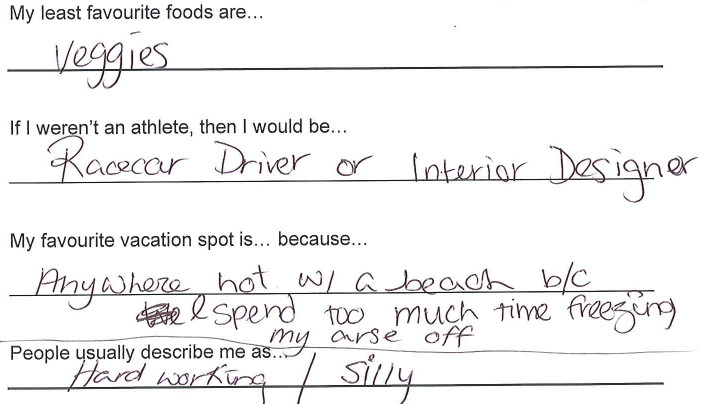 My least favourite foods are...
Veggies
If I weren't an athlete, then I would be...
Racecar Driver or Interior Designer
My favourite vacation spot is... because...
Anywhere hot w/ a beach b/c
I spend too much time freezing
my arse off
People usually describe me as...
Hard working / Silly